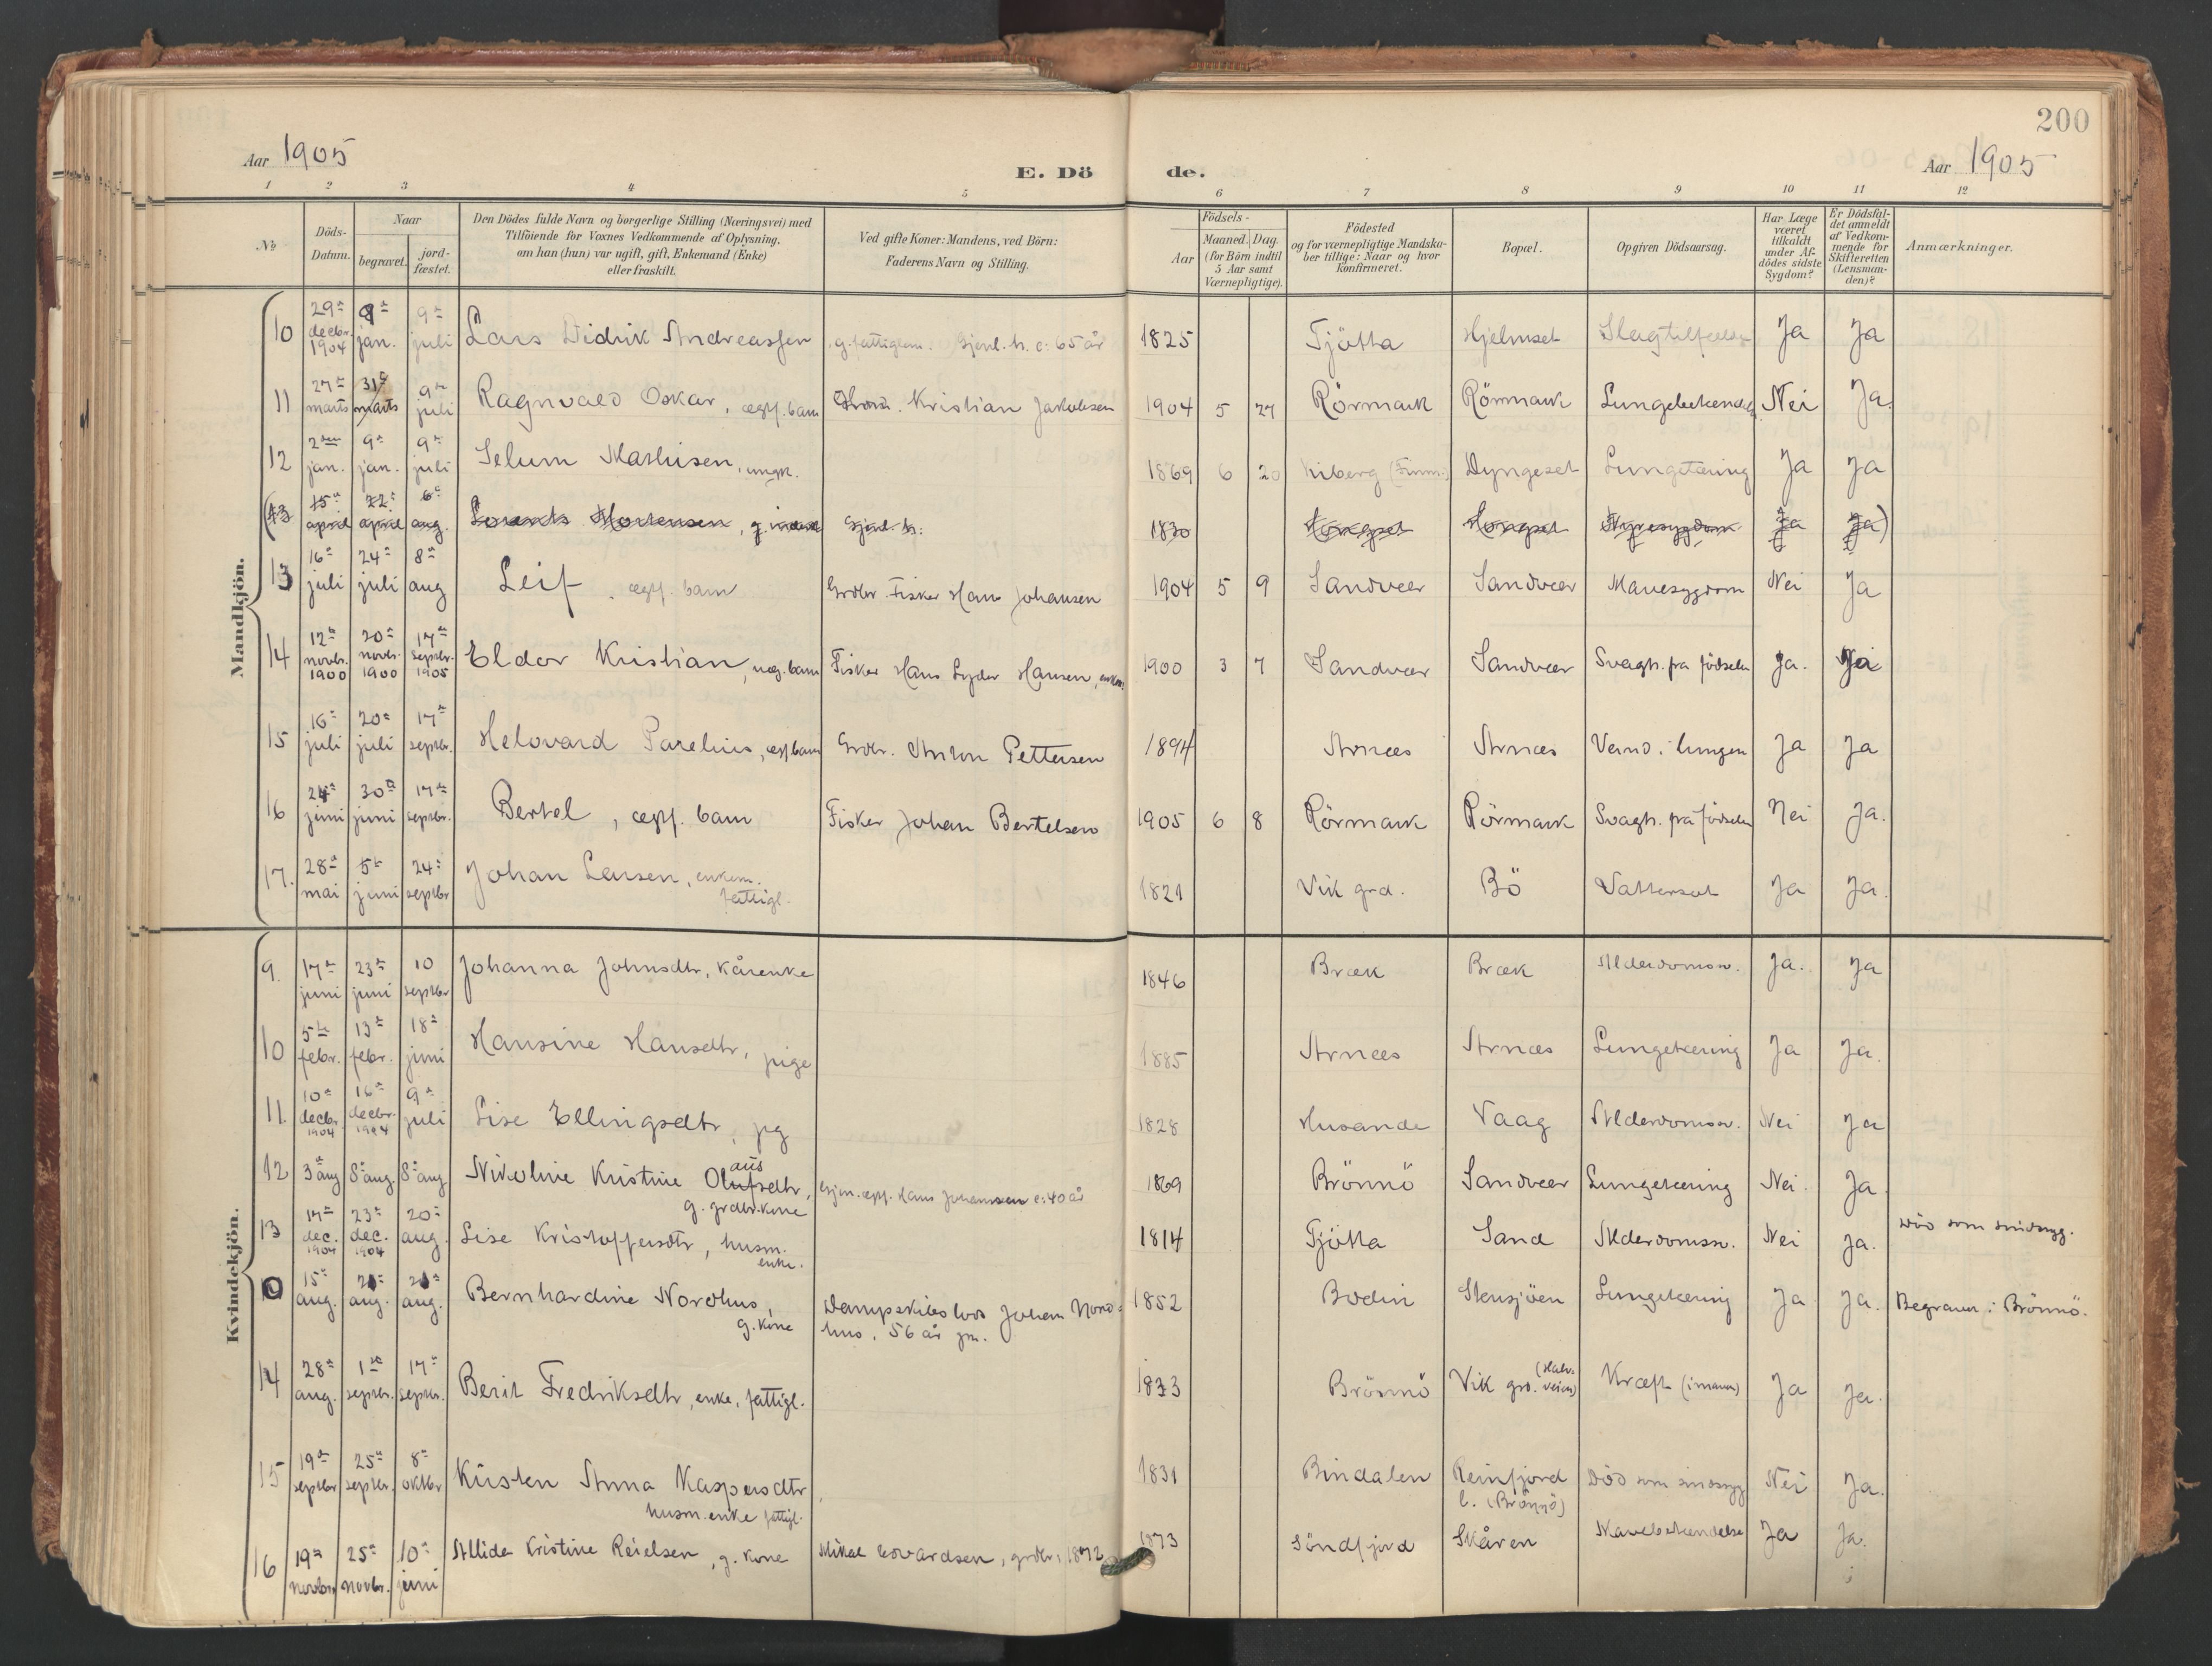 200
Aar 1905
E. Dö
de.
Aar 1905
1 2 3 4 5 6 7 8 9 10 11 12
No.
Döds-
Datum.
Naar
begravet.
jord-
fæstet.
Den Dödes fulde Navn og borgerlige Stilling (Næringsvei) med
Tilföiende for Voxnes Vedkommende af Oplysning,
om han (hun) var ugift, gift, Enkemand (Enke)
eller fraskilt.
Ved gifte Koner: Mandens, ved Börn:
Faderens Navn og Stilling.
Födsels-
Aar
Maaned. Dag.
(for Börn indtil
5 Aar samt
Værnepligtige).
Födested
og for værnepligtige Mandska-
ber tillige: Naar og hvor
konfirmeret.
Bopæl.
Opgiven Dödsaarsag.
Har Læge
været
tilkaldt
under Af-
dödes sidste
Sygdom?
Er Dödsfal-
det anmeldt
af Vedkom-
mende for
Skifteretten
(Lensman-
den)?
Anmærkninger.
Mandkjön.
10 29de decbr. 1904 8de jan. 9de juli Lars Didrik Andreassen g. fattiglem. 65 år 1825 Tjötta Hjelmset Slagtilfælde Ja Ja
11 27de marts 31te marts 9de juli Ragnvald Oskar, ægf. barn Kristian Jakobsen 1904 5 27 Rörmark Rörmark Lungebetændelse Nei Ja.
12 2den jan. 9de jan. 9de juli Selum Mathisen, ungk. 1869 6 20 Kiberg (Finm.) Dyngeset Lungetæring Ja Ja
(13 15de april 22de april 6te aug. Lorents Mortensen, g. 1830 Horsget Nyresygdom Ja Ja)
13 16de juli 24de juli 8de aug Leif, ægf. barn Grdbr. Fisker Hans Johansen 1904 5 9 Sandvær Sandvær Mavesygdom Nei Ja
14 12te novbr. 1900 20de novbr. 1900 17de septbr. 1905 Eldor Kristian, uæg. barn Fisker Hans Lyder Hansen, enkem. 1900 3 7 Sandvær Sandvær Svagh. fra födselen Ja. Ja
15 16de juli 20de juli 17de septbr. Helovard Parelius, ægf. barn Grdbr. Anton Pettersen 1894 Arnæs Arnæs Vand i lungen Ja Ja
16 24de juni 30te juni 17de septbr. Bertel, ægf. barn Fisker Johan Bertelsen 1905 6 8 Rörmark Rörmark Svagh. fra födselen Nei Ja.
17. 28de mai 5te juni 24de septbr Johan Larsen, enkem. fattigl. 1821 Vik grd. Bö Vattersot Ja Ja.
Kvindekjön.
9. 17de juni 23de juni 10 septbr Johanna Johnsdtr, kårenke 1846 Bræk Bræk Alderdomssv. Ja. Ja
10 5te febr. 13de febr. 18de juni Hansine Hansdtr, pige 1885 Arnæs Arnæs Lungetæring Ja Ja.
11. 10de decbr. 1904 16de decbr. 1904 9de juli Lise Ellingsdtr, pg 1828 Husande Vaag Alderdomssv. Nei Ja
12 3de aug 8de aug. 8de aug Nikoline Kristine Olufsdtr, g. grdbr.kone Hans Johansen c. 40 år 1869 Brönnö Sandvær Lungetæring Nei. Ja
13 17de dec. 1904 23de dec. 1904 20de aug. Lise Kristoffersdtr, husm. enke. 1814 Tjötta Sand Alderdomssv. Nei Ja. Död som sindssyg.
15de aug. 21de aug. 21de aug. Bernhardine Nordhus, g. kone Dampskibslods Johan Nord-
hus, 56 år gm. 1852 Bodin Stensjöen Lungetæring Ja Ja. Begraven i Brönnö.
14 28de aug. 1ste septbr. 17de septbr. Berit Fredriksdtr, enke, fattigl. 1823 Brönnö Vik grd. (Halv-
veien) Kræft (i maven) Ja Ja.
15 19de septbr 25de septbr. 8de oktbr Kirsten Anna Kaspersdtr
husm.enke fattigl. 1831 Bindalen Reinfjord
b. (Brönnö) Död som sindssyg Nei Ja.
16 19de novbr. 25de novbr. 10de juni Allida Kristine Reielsen, g. kone Mikal Edvardsen, grdbr, 1872 1873 Söndfjord Skåren Mavebetændelse Ja Ja.